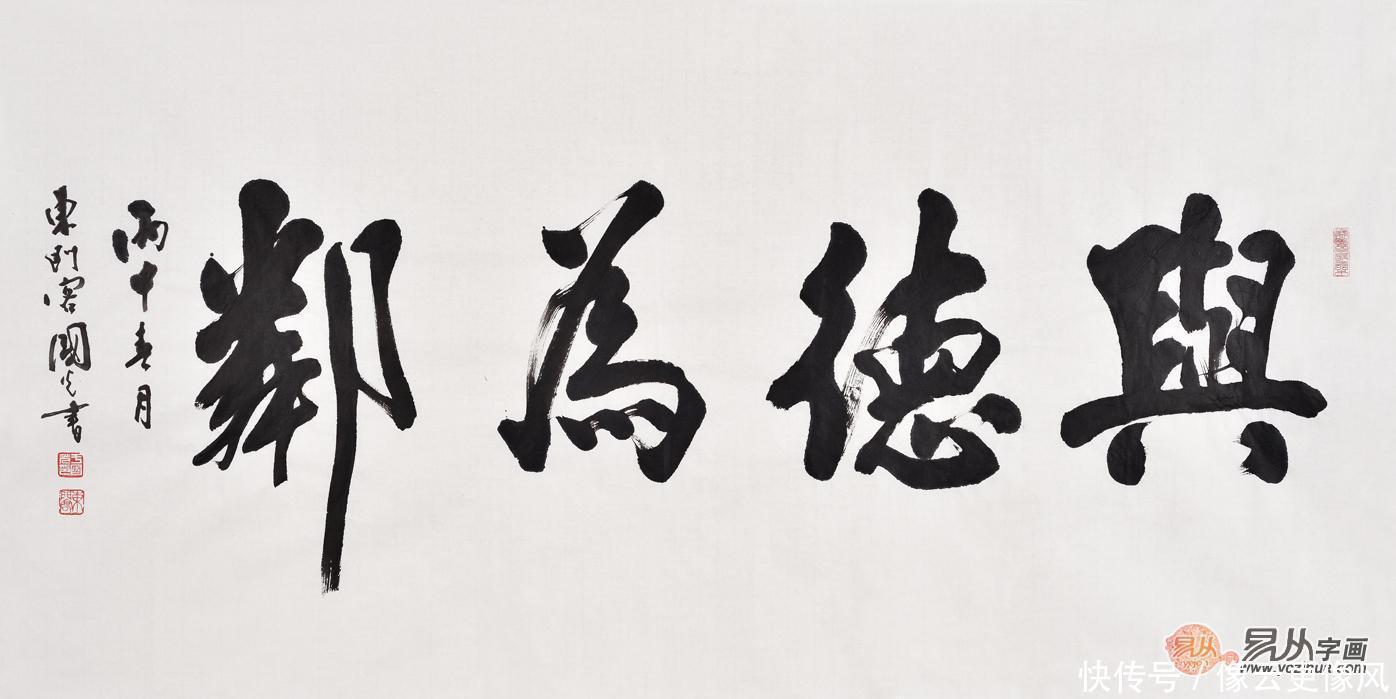 與德為鄰
丙申春月
東 客國 書
易从字画
www.yczihua.com
快传号 / 像云更像风